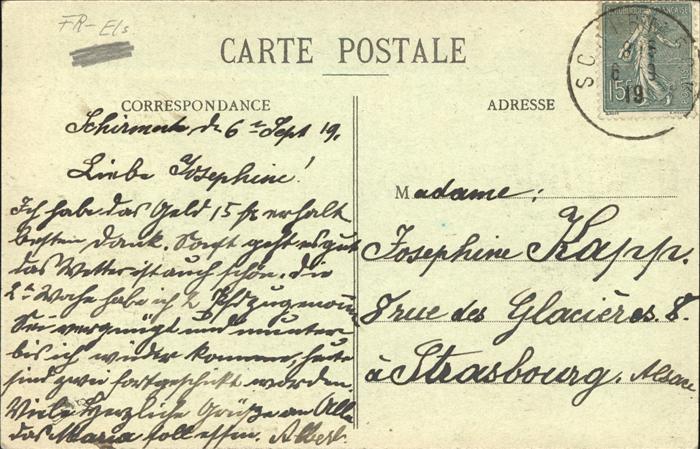 FR-Els
CARTE POSTALE
CORRESPONDANCE
ADRESSE
15c
SC
6 9
19
Schirmeck, d. 6ten Sept 19.
Liebe Josephine!
Ich habe das Geld 15 fr erhalt
besten Dank. Sonst geht es gut
das Wetter ist auch schön. Die
2te Woche habe ich 2 Pfd zugenom
Sei vergnügt und munter
bis ich wieder komme, heute
sind zwei fortgeschikt worden.
Viele Herzliche Grüße an Alle
das Maria soll essen. Albert.
Madame:
Josephine Kapp.
8 rue des Glacières. 8.
à Strasbourg. Alsace